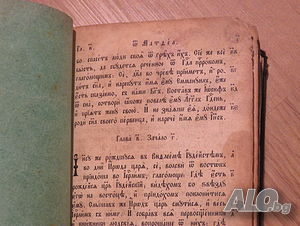 Гл. ѿ Матѳеа
во спасетъ люди своѧ ѿ грѣхъ ихъ. Сїе же все
бысть, да сбудетсѧ реченное ѿ Гд҃а пр҃рокомъ,
глаголющимъ: Се, два во чревѣ прїиметъ, и ро-
дитъ сн҃а, и нарекутъ имѧ ему Еммануилъ, еже
есть сказаемо, съ нами Бг҃ъ. Воставъ же Іѡсифъ
ѿ сна, сотвори ꙗкоже повелѣ ему Агг҃лъ Гд҃ень,
и прїѧтъ жену свою. И не знаѧше еѧ, дондеже
роди сн҃а своего первенца, и нарече имѧ ему Іис҃ъ.
Глава в҃. Зачало г҃.
Іису же рождшусѧ въ Виѳлеемѣ Іудейстѣмъ,
во дни Ирѡда царѧ, се, волсви ѿ востокъ
прїидоша во Іер҃лимъ, глаголюще: Гдѣ есть
рождейсѧ царь Іудейскїй; видѣхомъ бо звѣзду
егѡ на востоцѣ, и прїидохомъ поклонитисѧ
ему. Слышавъ же Ирѡдъ царь смутисѧ, и весь
съ нимъ. И собравъ всѧ первосвѧщенни-
ALO.bg